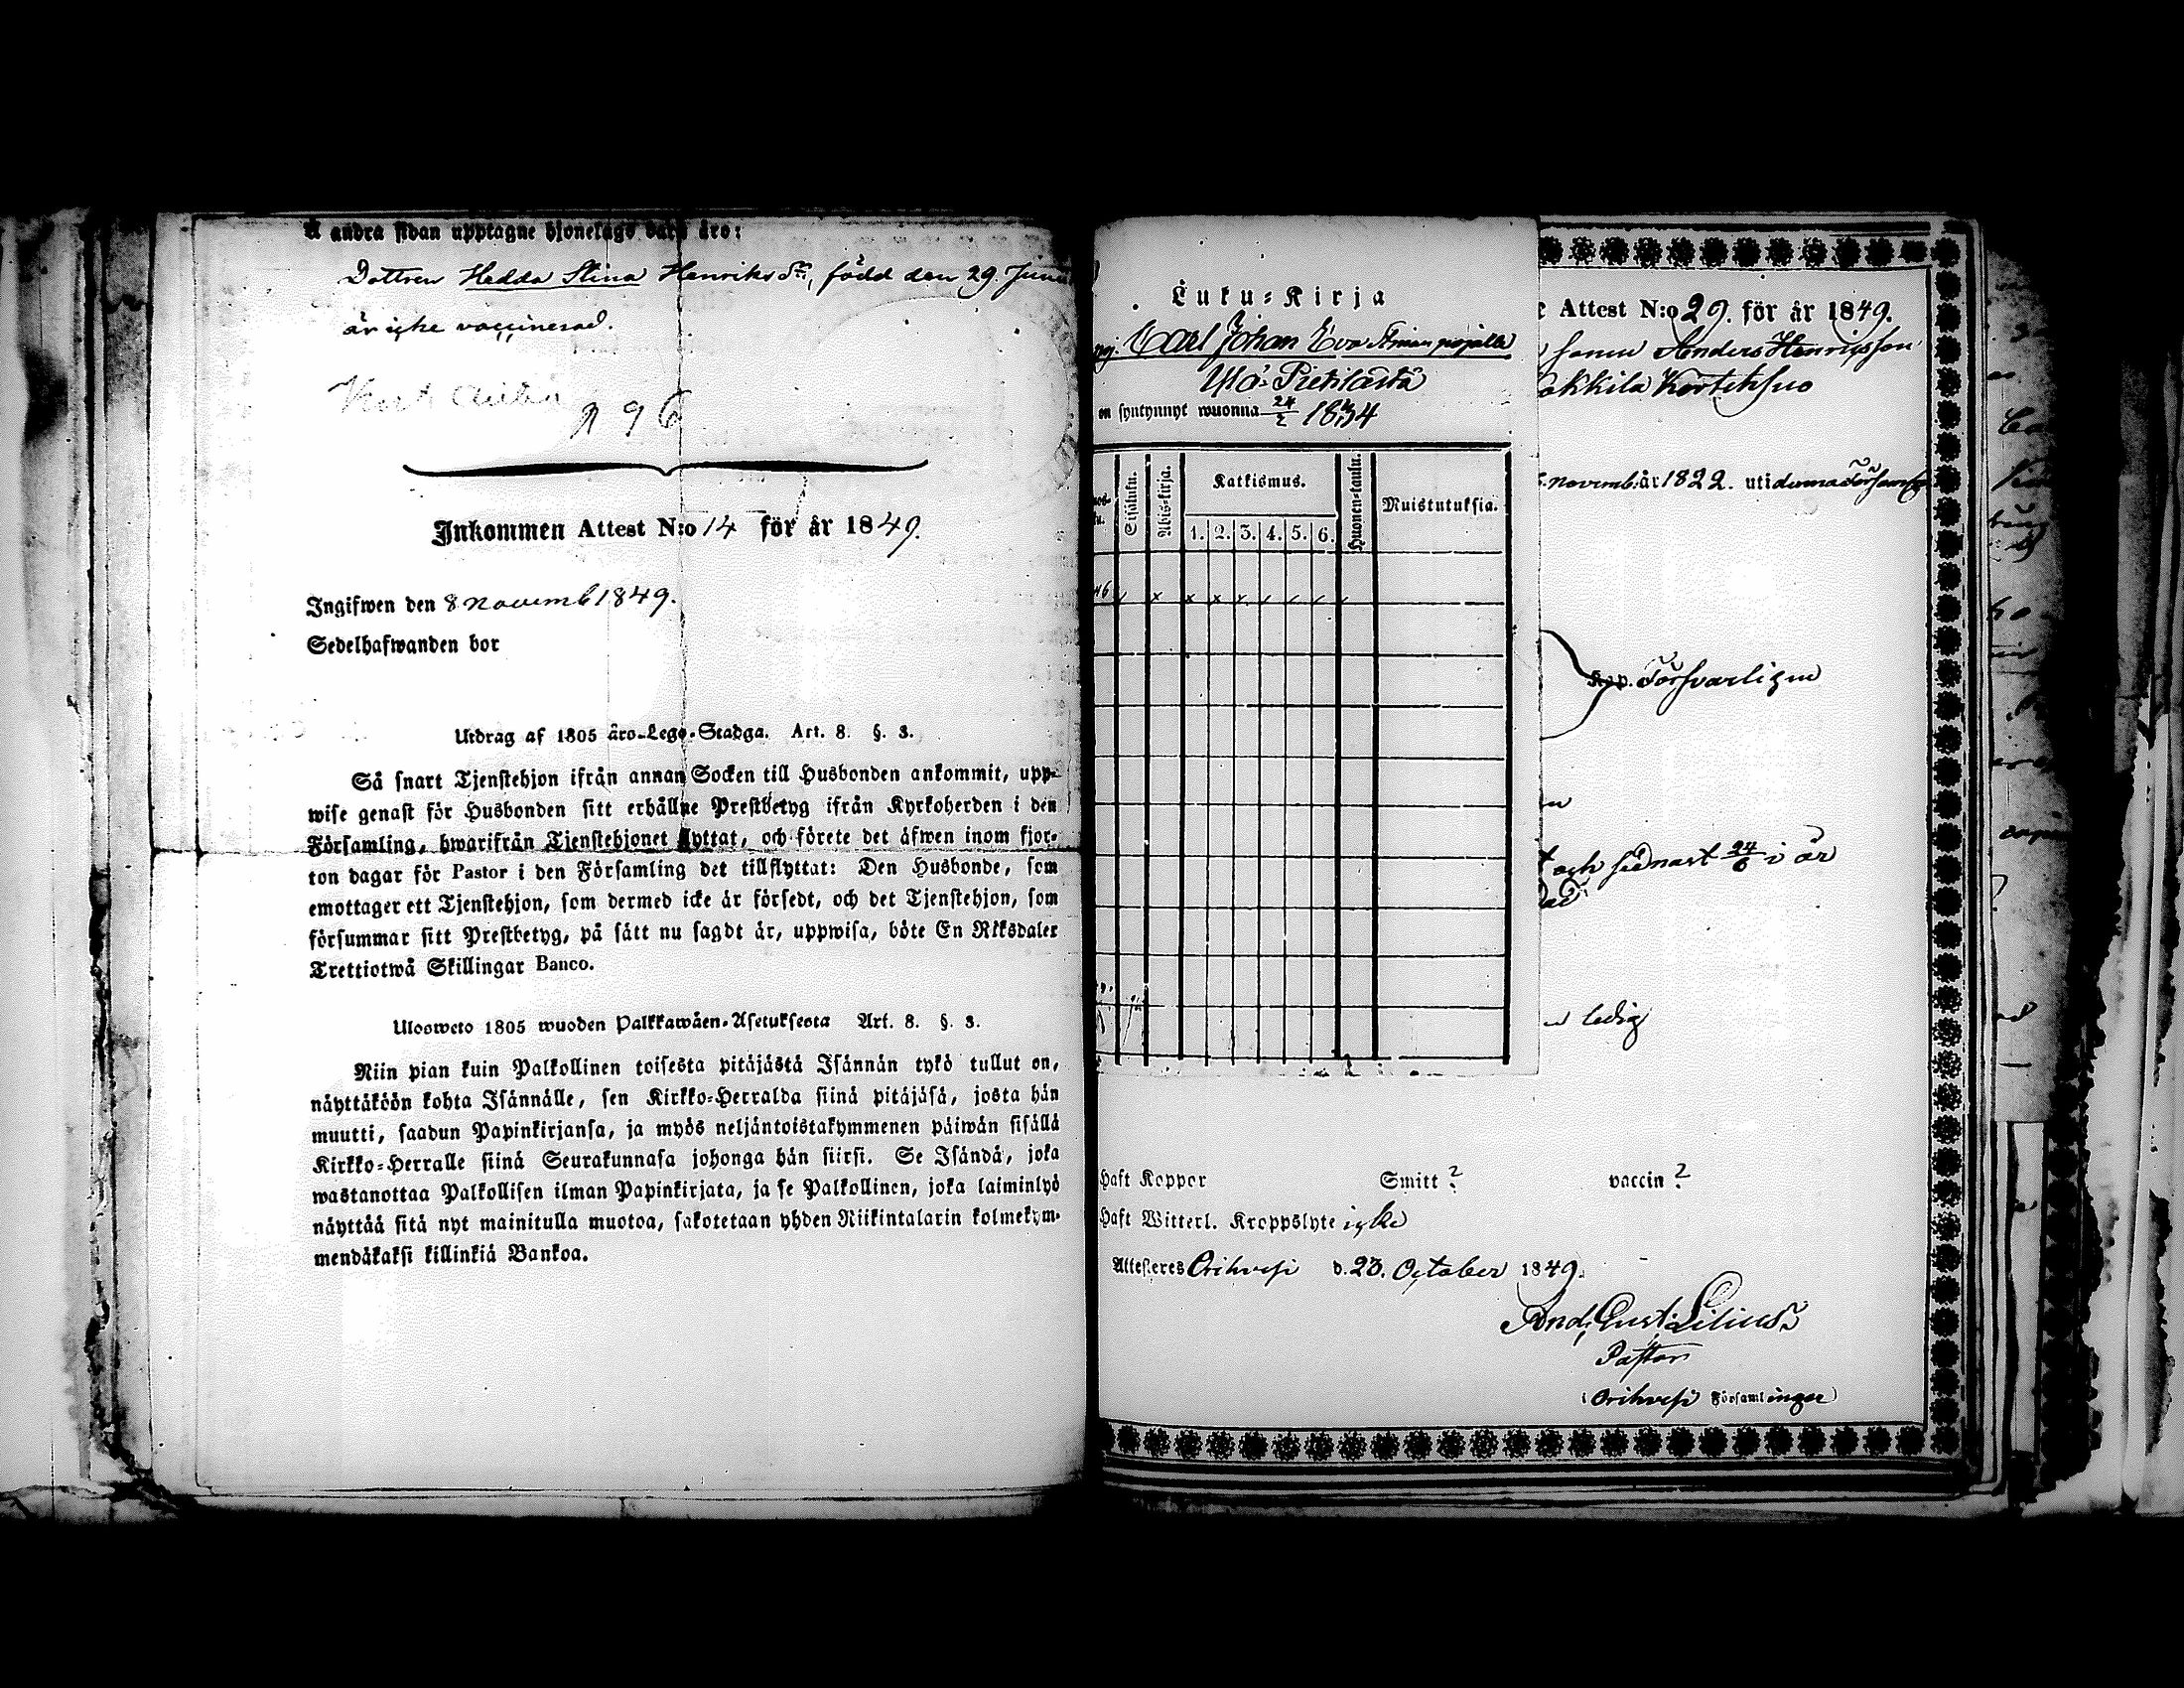 Å andra sidan upptagne hjonelags barn äro:
Dottren Hedda Stina Henriksdr, född den 29. Juni
är icke vaccinerad.
196
Inkommen Attest N:o 14 för år 1849.
Ingifwen den 8 novemb 1849.
Sedelhafwanden bor
Utdrag af 1805 års Lego-Stadga. Art. 8. §. 3.
Så snart Tjenstehjon ifrån annan Socken till Husbonden ankommit, upp-
wise genast för Husbonden sitt erhållne Prestbetyg ifrån Kyrkoherden i den
Församling, hwarifrån Tjenstehjonet flyttat, och förete det äfwen inom fjor-
ton dagar för Pastor i den Församling det tillflyttat: Den Husbonde, som
emottager ett Tjenstehjon, som dermed icke är försedt, och det Tjenstehjon, som
försummar sitt Prestbetyg, på sätt nu sagdt är, uppwisa, böte En Riksdaler
Trettiotwå Skillingar Banco.
Ulosweto 1805 wuoden Palkkawäen-Asetuksesta Art. 8. §. 3.
Niin pian kuin Palkollinen toisesta pitäjästä Isännän tykö tullut on,
näyttäköön kohta Isännälle, sen Kirkko-Herralda siinä pitäjäsä, josta hän
muutti, saadun Papinkirjansa, ja myös neljäntoistakymmenen päiwän sisällä
Kirkko-Herralle siinä Seurakunnasa johonga hän siirsi. Se Isändä, joka
wastanottaa Palkollisen ilman Papinkirjata, ja se Palkollinen, joka laiminlyö
näyttää sitä nyt mainitulla muotoa, sakotetaan yhden Riikintalarin kolmekym-
mendäkaksi killinkiä Bankoa.
Luku-Kirja
Carl Johan Eva Stinan pojalle
Ylä-Pietilästä
on syntynnyt wuonna 24/2 1834
Sisäluku.
Abiskirja.
Katkismus.
1. 2. 3. 4. 5. 6.
Huonen-taulu.
Muistutuksia.
Attest N:o 29. för år 1849.
sonen Anders Henricsson
Kortehsuo
novemb: år 1822. uti denna Församling
Kap. Försvarligen
och sednast 24/6 i år
ledig
Haft Koppor Smitt ? vaccin ?
Haft Witterl. Kroppslyte icke
Attesteres Orihvesi d. 23. October 1849.
And. Gust. Lilius
Pastor
i Orihvesi Församlingar